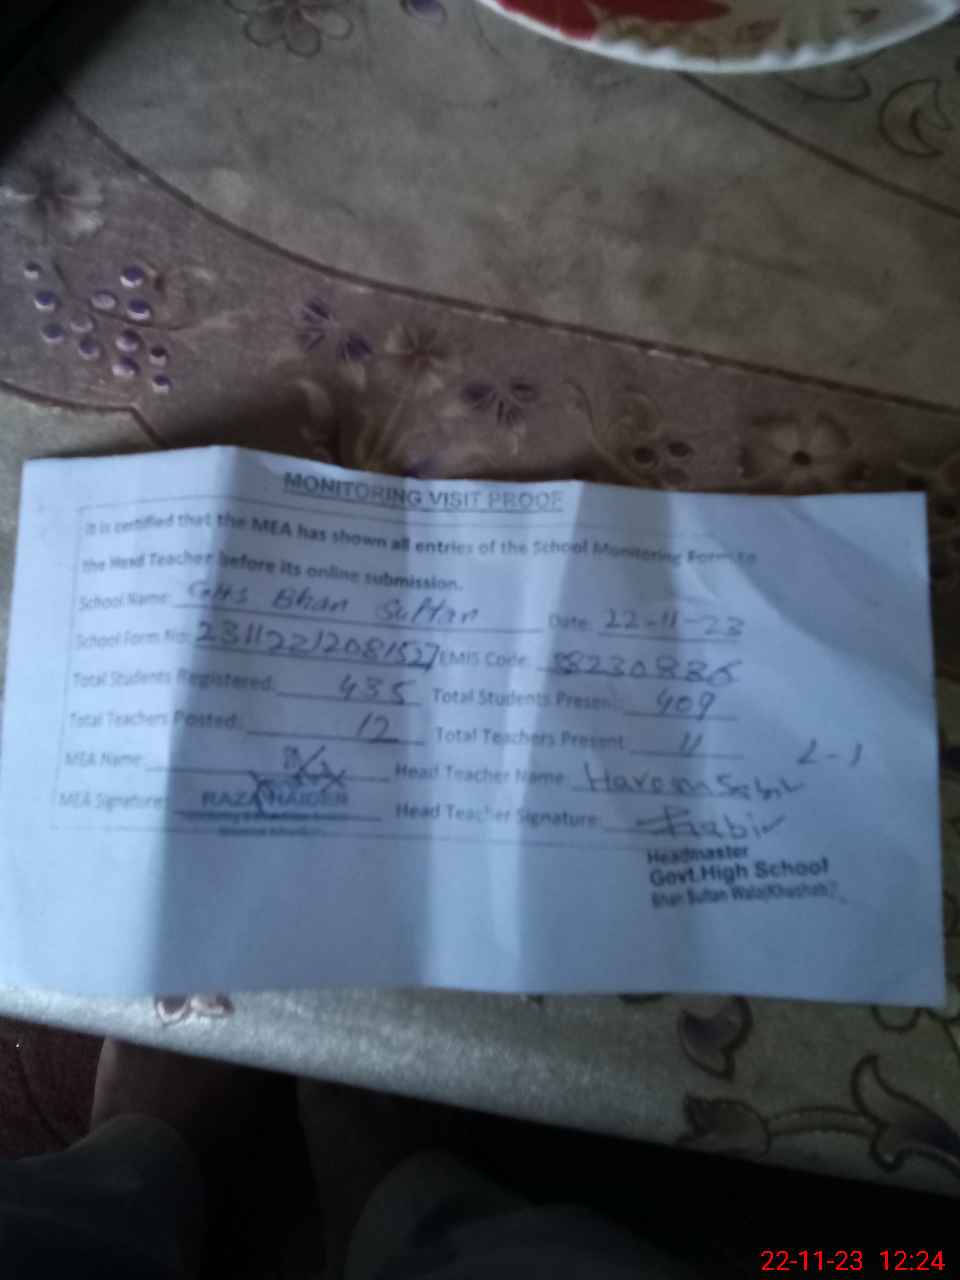 MONITORING VISIT PROOF
It is certified that the MEA has shown all entries of the School Monitoring Form to
the Head Teacher before its online submission.
School Name: GHS Bhan Sultan Date: 22-11-23
School Form No: 23112212081527 EMIS Code: 38230886
Total Students Registered: 435 Total Students Present: 409
Total Teachers Posted: 12 Total Teachers Present 11 L-1
MEA Name: Head Teacher Name: Haroon Sabir
MEA Signature: RAZA HAIDER Head Teacher Signature: Sabir
Headmaster
Govt.High School
Bhan Sultan Wala(Khushab)
22-11-23 12:24